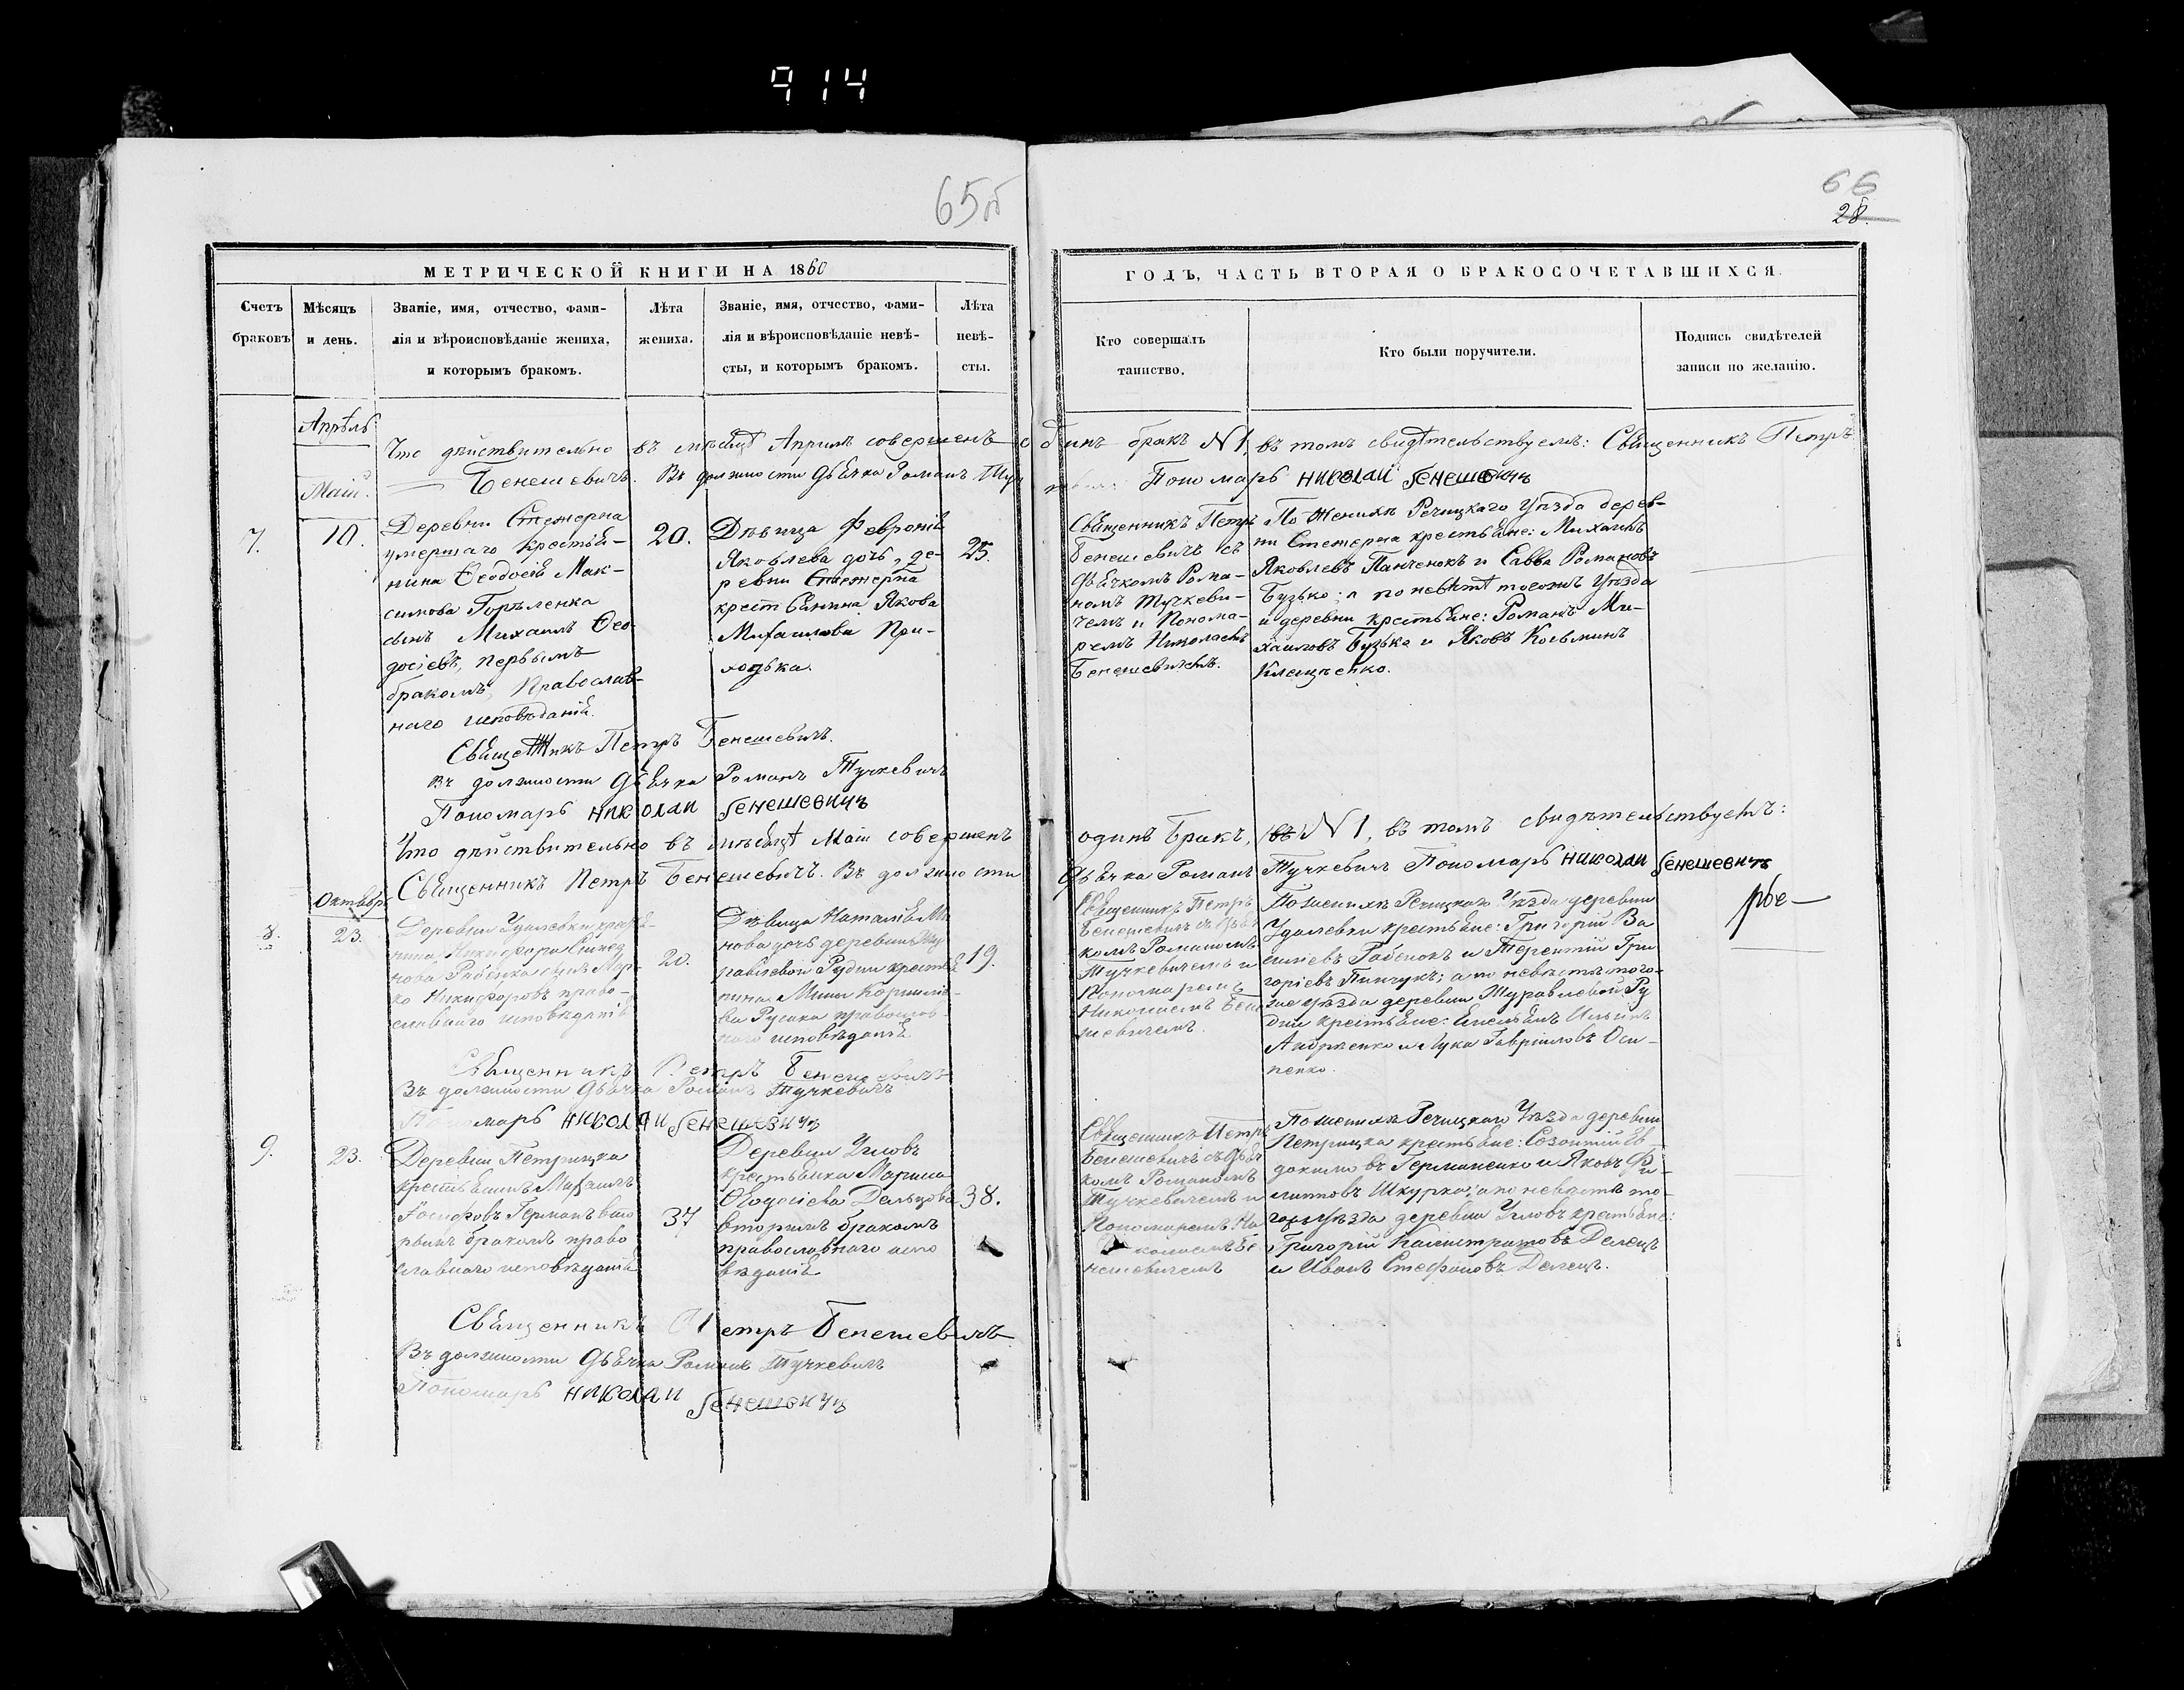 914
65об
66
28.
МЕТРИЧЕСКОЙ КНИГИ НА 1860
Счетъ браковъ
Мѣсяцъ и день.
Званіе, имя, отчество, фами-
лія и вѣроисповѣданіе жениха,
и которымъ бракомъ.
Лѣта жениха.
Званіе, имя, отчество, фами-
лія и вѣроисповѣданіе невѣ-
сты, и которымъ бракомъ.
Лѣта невѣ-
сты.
ГОДЪ, ЧАСТЬ ВТОРАЯ О БРАКОСОЧЕТАВШИХСЯ.
Кто совершалъ
таинство.
Кто были поручители.
Подпись свидѣтелей
записи по желанію.
Апрѣль
Что дѣйствительно въ мѣсяцѣ Апрѣлѣ совершенъ одинъ бракъ N 1, въ томъ свидѣтельствуемъ: Священникъ Петръ
Бенешевичъ. Въ должности дьячка Романъ Тучкевичъ Пономарь Николай Бенешевичъ
Май.
7.
10.
Деревни Стежерна
умершаго крестья-
нина Ѳеодосія Мак-
симова Горѣленка
сынъ Михаилъ Ѳео-
досіевъ, первымъ
бракомъ, Православ-
наго исповѣданія.
20.
Дѣвица Февронія
Яковлева дочь, де-
ревни Стежерна
крестьянина Якова
Михаилова При-
ходька.
25.
Священникъ Петръ
Бенешевичъ съ
дьячкомъ Рома-
номъ Тучкеви-
чемъ и Понома-
ремъ Николаемъ
Бенешевичемъ.
По Женихѣ Речицкаго Уѣзда дерев-
ни Стежерна крестьяне: Михаилъ
Яковлевъ Панченокъ и Савва Романовъ
Бузько; а по невѣстѣ тогожъ Уѣзда
и деревни крестьяне: Романъ Ми-
хаиловъ Бузько и Яковъ Козьминъ
Клещенко.
Священникъ Петръ Бенешевичъ.
Въ должности Дьячка Романъ Тучкевичъ
Пономарь Николай Бенешевичъ
Что дѣйствительно въ мѣсяцѣ Маѣ совершенъ одинъ Бракъ, N 1, въ томъ свидѣтельствуемъ:
Священникъ Петръ Бенешевичъ. Въ должности Дьячка Романъ Тучкевичъ Пономарь Николай Бенешевичъ
Октябрь
8.
23.
Деревни Удалевки крестья-
нина Никифора
сынъ Мар-
ко Никифоровъ право-
славнаго исповѣданія
20.
Дѣвица Наталія Ми
нова дочь деревни Жу
равлевой Рудни крестья
нина Мины Корнилі-
ва Русака православ
наго исповѣданія
19.
Священникъ Петръ
Бенешевичъ съ Дьяч
комъ Романомъ
Тучкевичемъ и
Пономаремъ
Николаемъ Бене
шевичемъ.
По женихѣ Речицкаго Уѣзда деревни
Удалевки крестьяне: Григорій Ва
силіевъ Рабенокъ и Терентій Гри
горіевъ Пинчукъ; а по невѣстѣ того-
же уѣзда деревни Журавлевой Ру
дни крестьяне: Емельянъ Ильинъ
Андрѣенко и Лука Гавріиловъ Оси-
пенко.
Священникъ Петръ Бенешевичъ
Въ должности Дьячка Романъ Тучкевичъ
Пономарь Николай Бенешевичъ
9.
23.
Деревни Петрицка
крестьянинъ Михаилъ
Іосифовъ Германъ вто
рымъ бракомъ право
славнаго исповѣданія
37
Деревни Углов
крестьянка Марина
Ѳеодосіева
вторымъ бракомъ
православнаго испо
вѣданія
38.
Священникъ Петръ
Бенешевичъ съ Дьяч
комъ Романомъ
Тучкевичемъ и
Пономаремъ Ни
колаемъ Бе
нешевичемъ
По женихѣ Речицкаго Уѣзда деревни
Петрицка крестьяне: Созонтій Ев
докимовъ Германенко и Яковъ Фи-
липповъ Шкурко; а по невѣстѣ то-
гожъ уѣзда деревни Углов крестьяне:
Григорій Калистратовъ Делецъ
и Иванъ Стефановъ Делецъ.
Священникъ Петръ Бенешевичъ
Въ должности Дьячка Романъ Тучкевичъ
Пономарь Николай Бенешевичъ